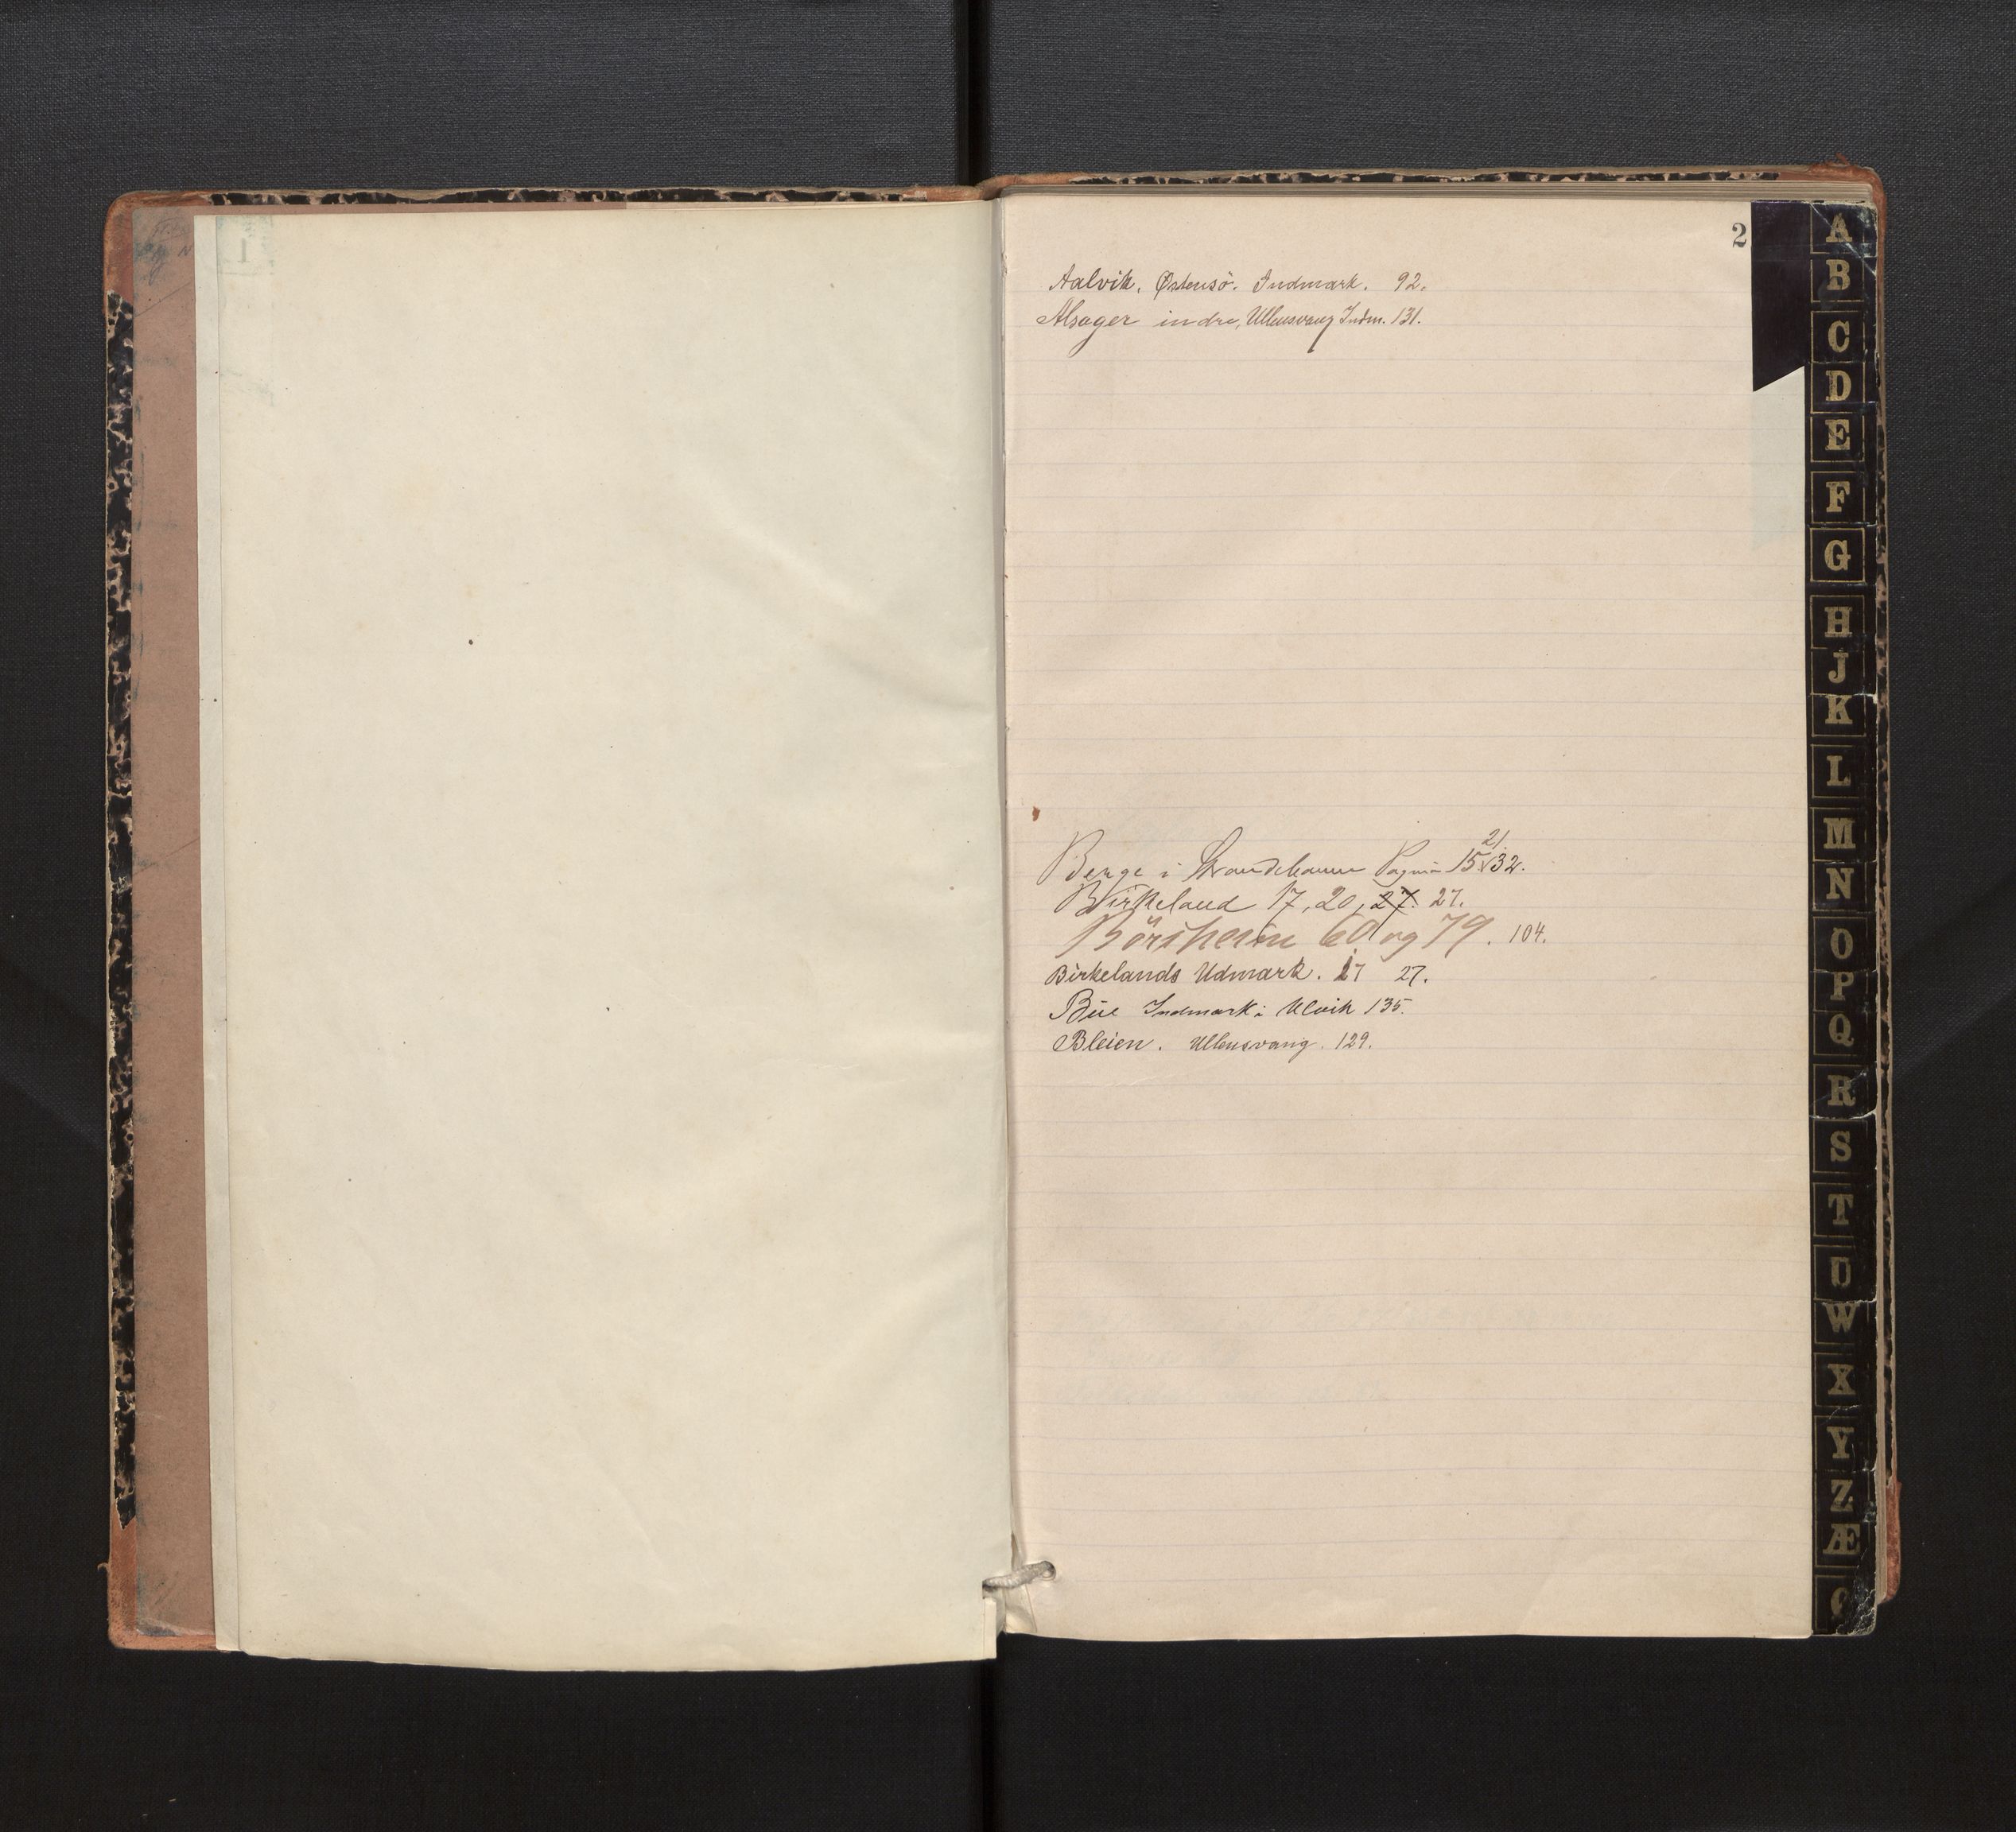 2
Aalvik, Østensö. Indmark. 92.
Alsager indre, Ullensvang Indm. 131.
21.
Berge i Strandebarm Pagina 15, 32.
Birkeland 17, 20, 27. 27.
Börsheim 60 og 79. 104.
Birkelands Udmark. 27 27.
Büe Indmark i Ulvik 135.
Bleien. Ullensvang. 129.
A
B
C
D
E
F
G
H
J
K
L
M
N
O
P
Q
R
S
T
U
W
X
Y
Z
Æ